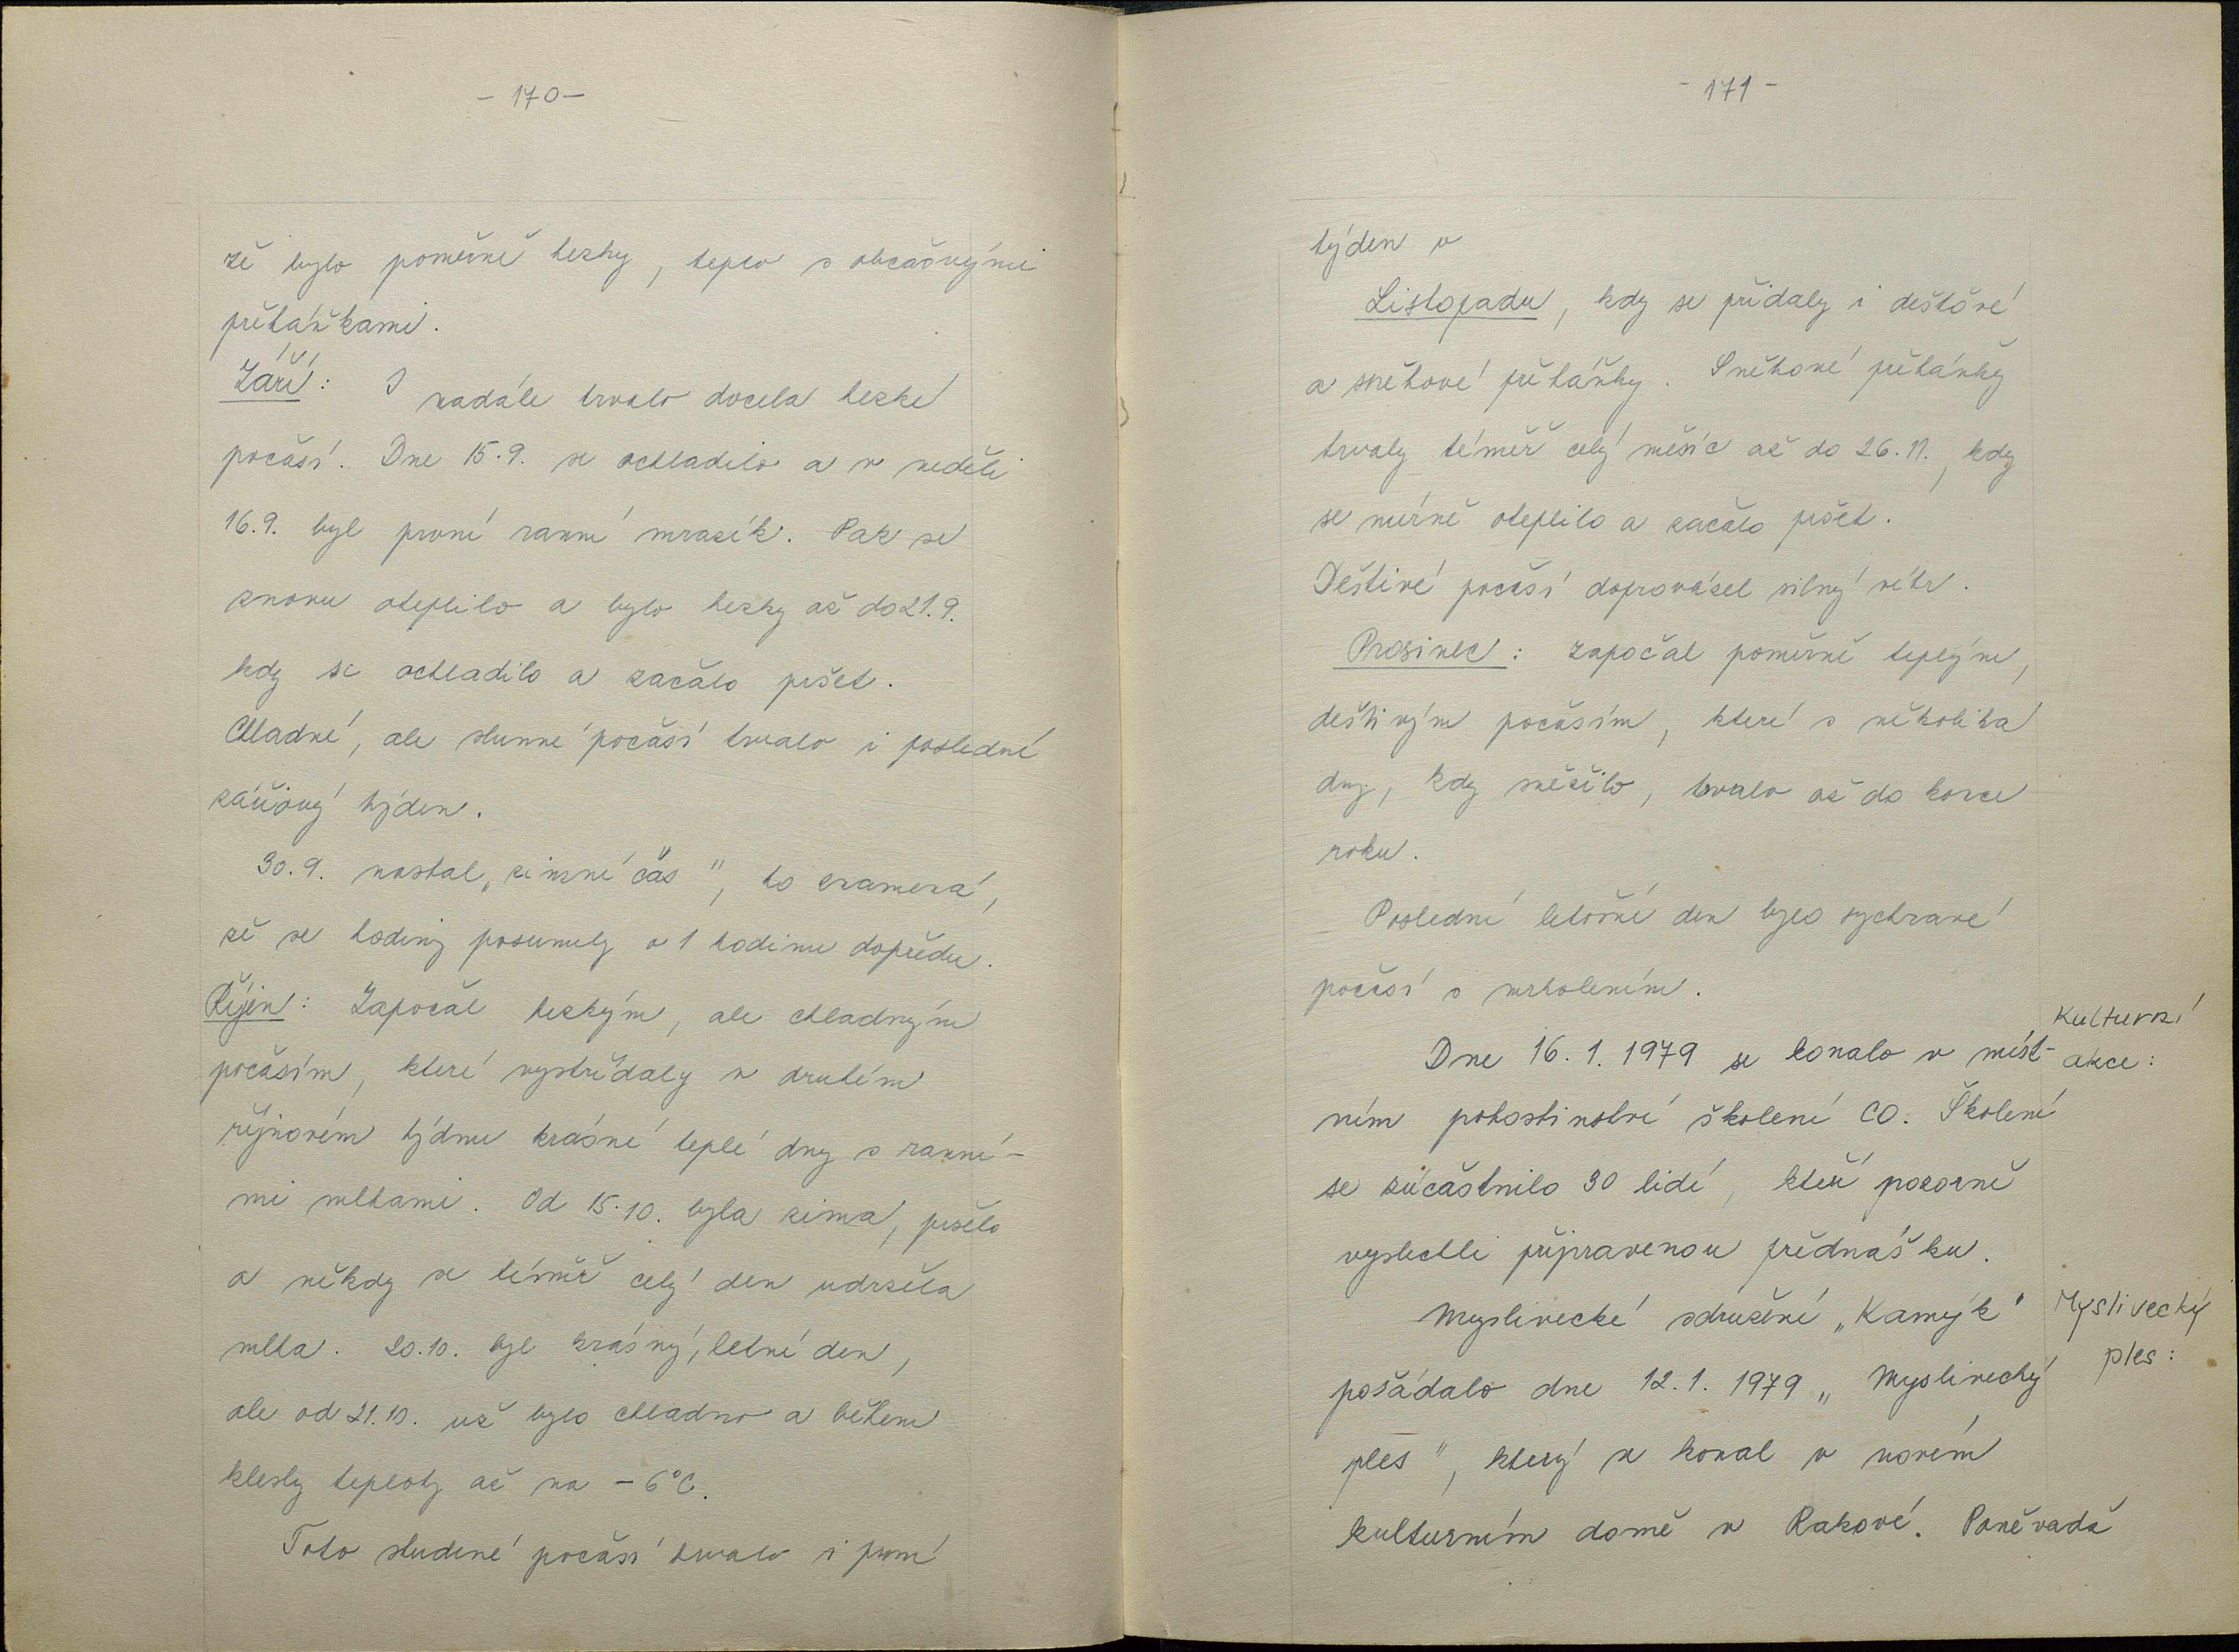 - 170 -
že bylo poměrně hezky, teplo s občasnými
přeháňkami.
Září: I nadále trvalo docela hezké
počasí. Dne 15.9. se ochladilo a v neděli
16.9. byl první ranní mrazík. Pak se
znovu oteplilo a bylo hezky až do 21.9.
kdy se ochladilo a začalo pršet.
Chladné, ale slunné počasí trvalo i poslední
záříjový týden.
30.9. nastal „zimní čas", to znamená,
že se hodiny posunuly o 1 hodinu dopředu.
Říjen: Započal hezkým, ale chladným
počasím, které vystřídaly v druhém
říjnovém týdnu krásné teplé dny s ranní-
mi mlhami. Od 15.10. byla zima, pršelo
a někdy se téměř celý den udržela
mlha. 20.10. byl krásný, letní den,
ale od 21.10. už bylo chladno a během
klesly teploty až na - 6°C.
Toto studené počasí trvalo i první
- 171 -
týden v
Listopadu, kdy se přidaly i dešťové
a sněhové přeháňky. Sněhové přeháňky
trvaly téměř celý měsíc až do 26.11., kdy
se mírně oteplilo a začalo pršet.
Deštivé počasí doprovázel silný vítr.
Prosinec: započal poměrně teplým,
deštivým počasím, které s několika
dny, kdy sněžilo, trvalo až do konce
roku.
Poslední letošní den bylo sychravé
počasí s mrholením.
Kulturní
akce:
Dne 16.1.1979 se konalo v míst-
ním pohostinství školení CO. Školení
se zúčastnilo 30 lidí, kteří pozorně
vyslechli připravenou přednášku.
Myslivecký
ples:
Myslivecké sdružení „Kamýk"
pořádalo dne 12.1.1979 „Myslivecký
ples", který se konal v novém
kulturním domě v Rakové. Poněvadž